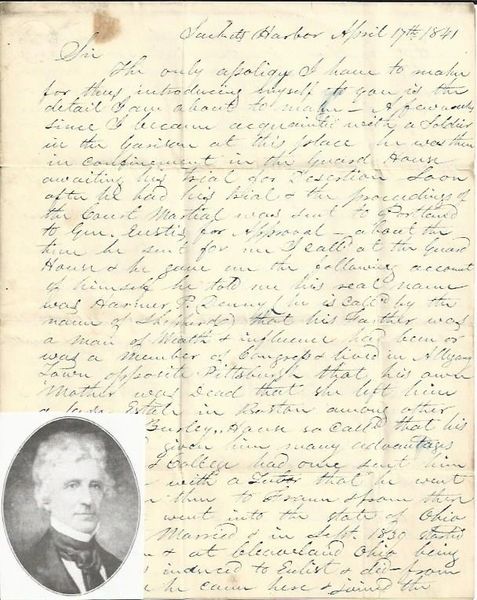 Sackets Harbor April 17th 1841
Sir
The only apology I have to make
for thus introducing myself to you is the
detail I am about to make - A few weeks
since I became acquainted with a Soldier
in the Garison at this place he was then
in confinement in the Guard House
awaiting his trial for Desertion Soon
after he had his trial & the proceedings of
the Court Martial was sent to Portland
to Gen. Eustis for Approval - about the
time he sent for me I called at the Guard
House & he gave me the following account
of himself he told me his real name
was Harmer P. Denny (he is called by the
name of Shepherd) that his Father was
a man of Wealth & influence had been or
was a member of Congress & lived in Allegany
Town opposite Pittsburgh that his own
Mother was Dead that she left him
a large Estate in Boston among other
House so called that his
given him many advantages
& College had once sent him
with a that he went
then to & from there
went into the state of Ohio
Married & in Sept. 1839 started
& at Cleaveland Ohio being
induced to Enlist & did - from
he came here & joined the